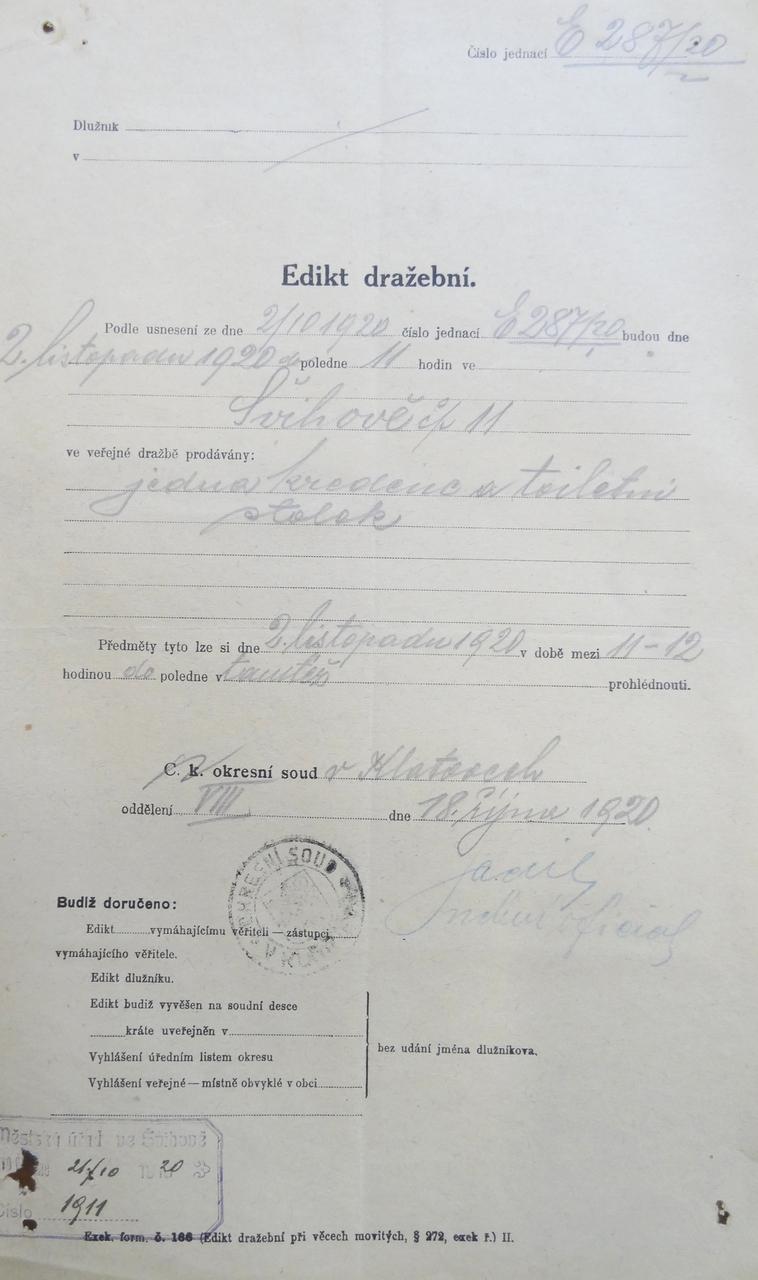 Číslo jednací E 287/20
Dlužník
v
Edikt dražební.
Podle usnesení ze dne 2/10 1920 číslo jednací E 287/20 budou dne
2. listopadu 1920 do poledne 11 hodin ve
Švihově čp 11
ve veřejné dražbě prodávány:
jedna kredenc a toiletní
stolek
Předměty tyto lze si dne 2. listopadu 1920 v době mezi 11-12
hodinou do poledne v tamtéž prohlédnouti.
C. k. okresní soud v Klatovech
oddělení VIII dne 18. října 1920
OKRESNÍ SOUD
Budiž doručeno:
Edikt vymáhajícímu věřiteli — zástupci
vymáhajícího věřitele.
Edikt dlužníku.
Edikt budiž vyvěšen na soudní desce
kráte uveřejněn v
Vyhlášení úředním listem okresu
Vyhlášení veřejné — místně obvyklé v obci
bez udání jména dlužníkova.
Městský úřad ve Švihově
21/10 20
Číslo 1911
Exek. form. č. 166 (Edikt dražební při věcech movitých, § 272, exek ř.) II.